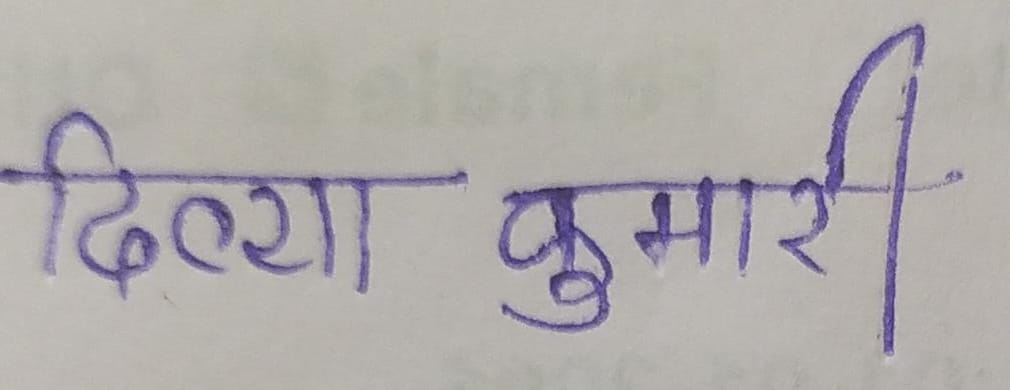 दिव्या कुमारी